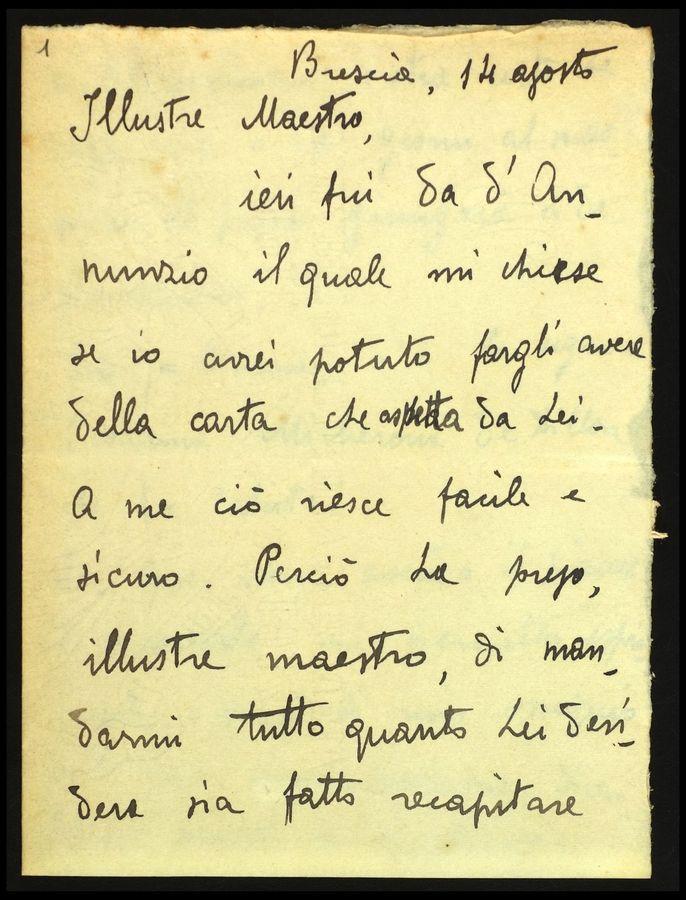 1
Brescia, 14 agosto
Illustre Maestro,
ieri fui da d'An_
nunzio il quale mi chiese
se io avrei potuto fargli avere
della carta che aspetta da Lei.
A me ciò riesce facile e
sicuro. Perciò La prego,
illustre maestro, di man_
darmi tutto quanto Lei desi_
dera sia fatto recapitare